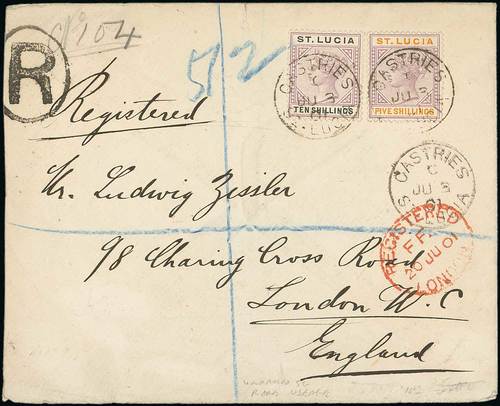 No 104
R
Registered
512
ST. LUCIA
TEN SHILLINGS
ST. LUCIA
FIVE SHILLINGS
CASTRIES
C
JU 3
ST. LUCIA
CASTRIES
C
JU 3
CASTRIES
C
JU 3
01
Mr. Ludwig Zissler
98 Charing Cross Road
London W. C
England
REGISTERED
20 JU 01
LONDON